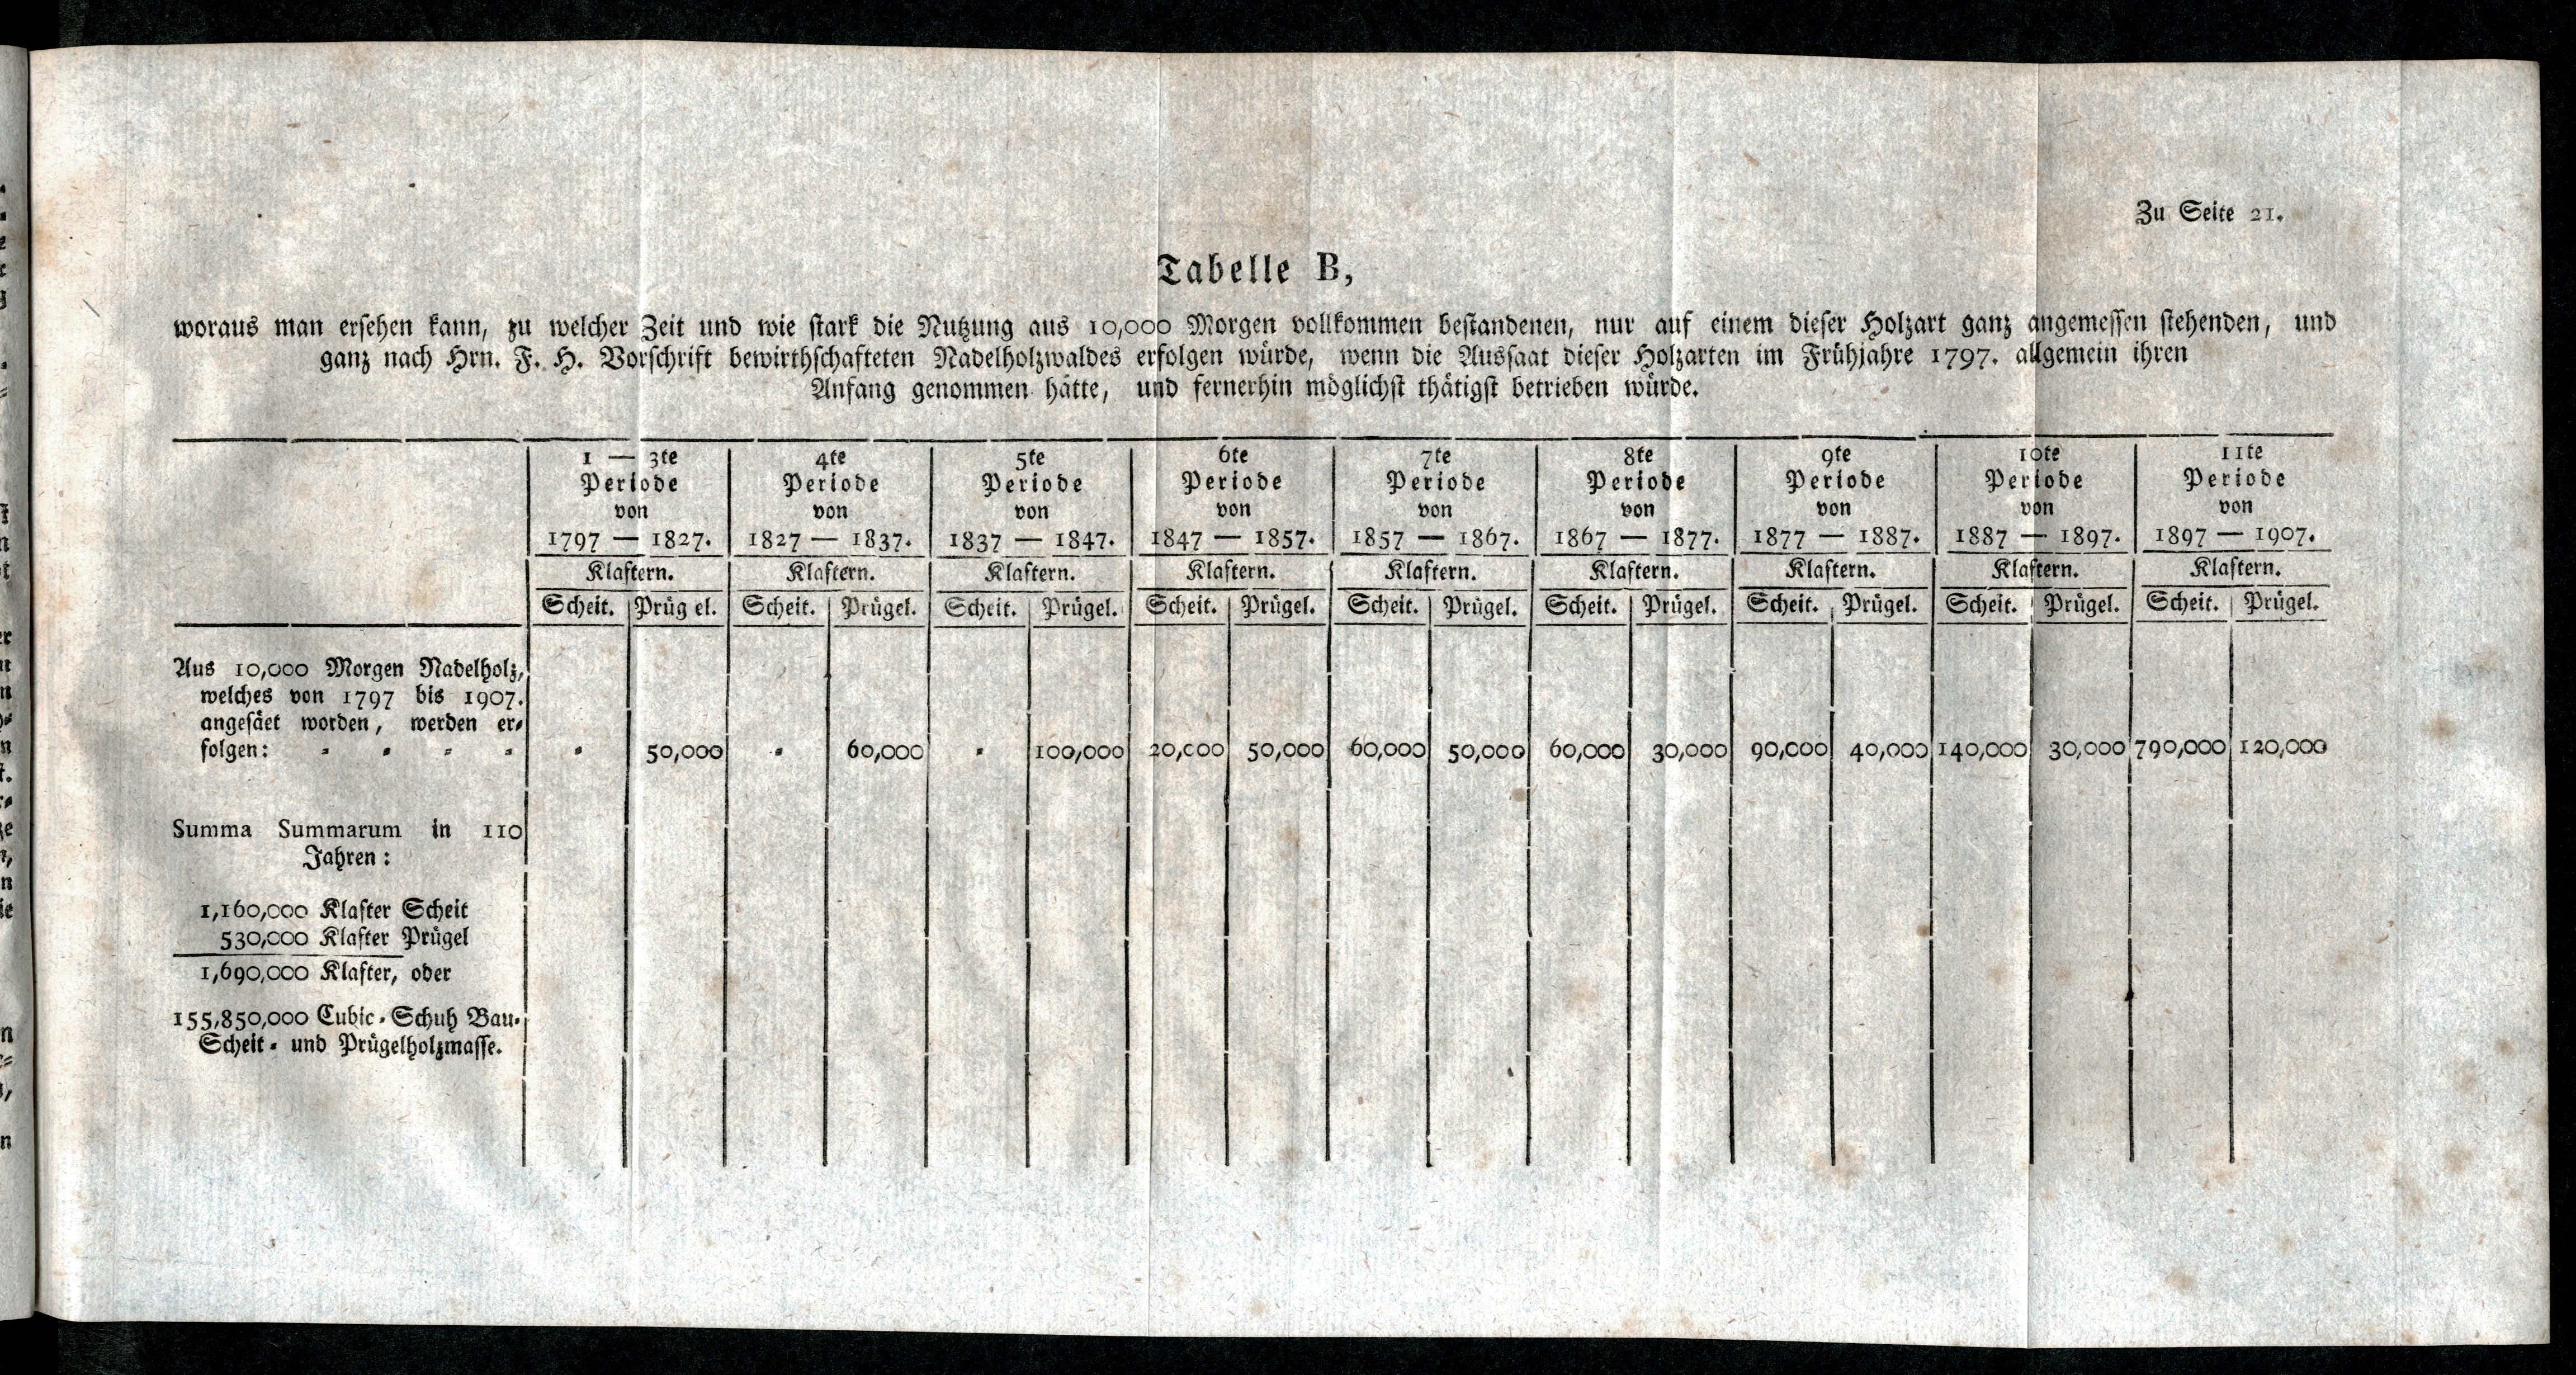 Zu Seite 21.
Tabelle B,
woraus man ersehen kann, zu welcher Zeit und wie stark die Nutzung aus 10,000 Morgen vollkommen bestandenen, nur auf einem dieser Holzart ganz angemessen stehenden, und
ganz nach Hrn. F. H. Vorschrift bewirthschafteten Nadelholzwaldes erfolgen würde, wenn die Aussaat dieser Holzarten im Frühjahre 1797. allgemein ihren
Anfang genommen hätte, und fernerhin möglichst thätigst betrieben würde.
1 — 3te 4te 5te 6te 7te 8te 9te 10te 11te
Periode Periode Periode Periode Periode Periode Periode Periode Periode
von von von von von von von von von
1797 — 1827. 1827 — 1837. 1837 — 1847. 1847 — 1857. 1857 — 1867. 1867 — 1877. 1877 — 1887. 1887 — 1897. 1897 — 1907.
Klaftern. Klaftern. Klaftern. Klaftern. Klaftern. Klaftern. Klaftern. Klaftern. Klaftern.
Scheit. Prüg el. Scheit. Prügel. Scheit. Prügel. Scheit. Prügel. Scheit. Prügel. Scheit. Prügel. Scheit. Prügel. Scheit. Prügel. Scheit. Prügel.
Aus 10,000 Morgen Nadelholz,
welches von 1797 bis 1907.
angesäet worden, werden er-
folgen: - - - - - 50,000 - 60,000 - 100,000 20,000 50,000 60,000 50,000 60,000 30,000 90,000 40,000 140,000 30,000 790,000 120,000
Summa Summarum in 110
Jahren:
1,160,000 Klafter Scheit
530,000 Klafter Prügel
1,690,000 Klafter, oder
155,850,000 Cubic-Schuh Bau-
Scheit- und Prügelholzmasse.